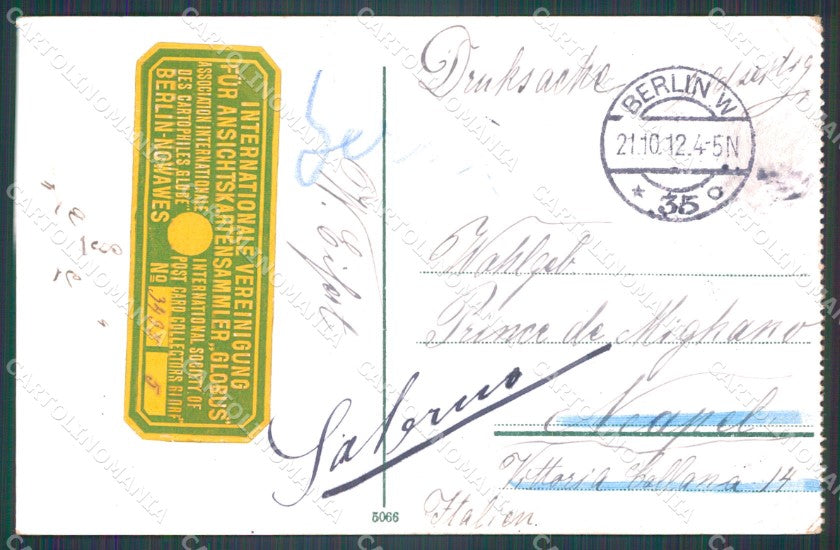 INTERNATIONALE VEREINIGUNG
FÜR ANSICHTSKARTENSAMMLER „GLOBUS"
ASSOCIATION INTERNATIONALE
DES CARTOPHILES „GLOBE"
INTERNATIONAL SOCIETY OF
POST CARD COLLECTORS
BERLIN-NOWAWES
No
5
Drucksache
BERLIN W
21.10.12.4-5N
* 35 o
Prince de Mignano
Neapel
Vittoria Collana 14
Italien.
Salerno
5066
CARTOLINOMANIA